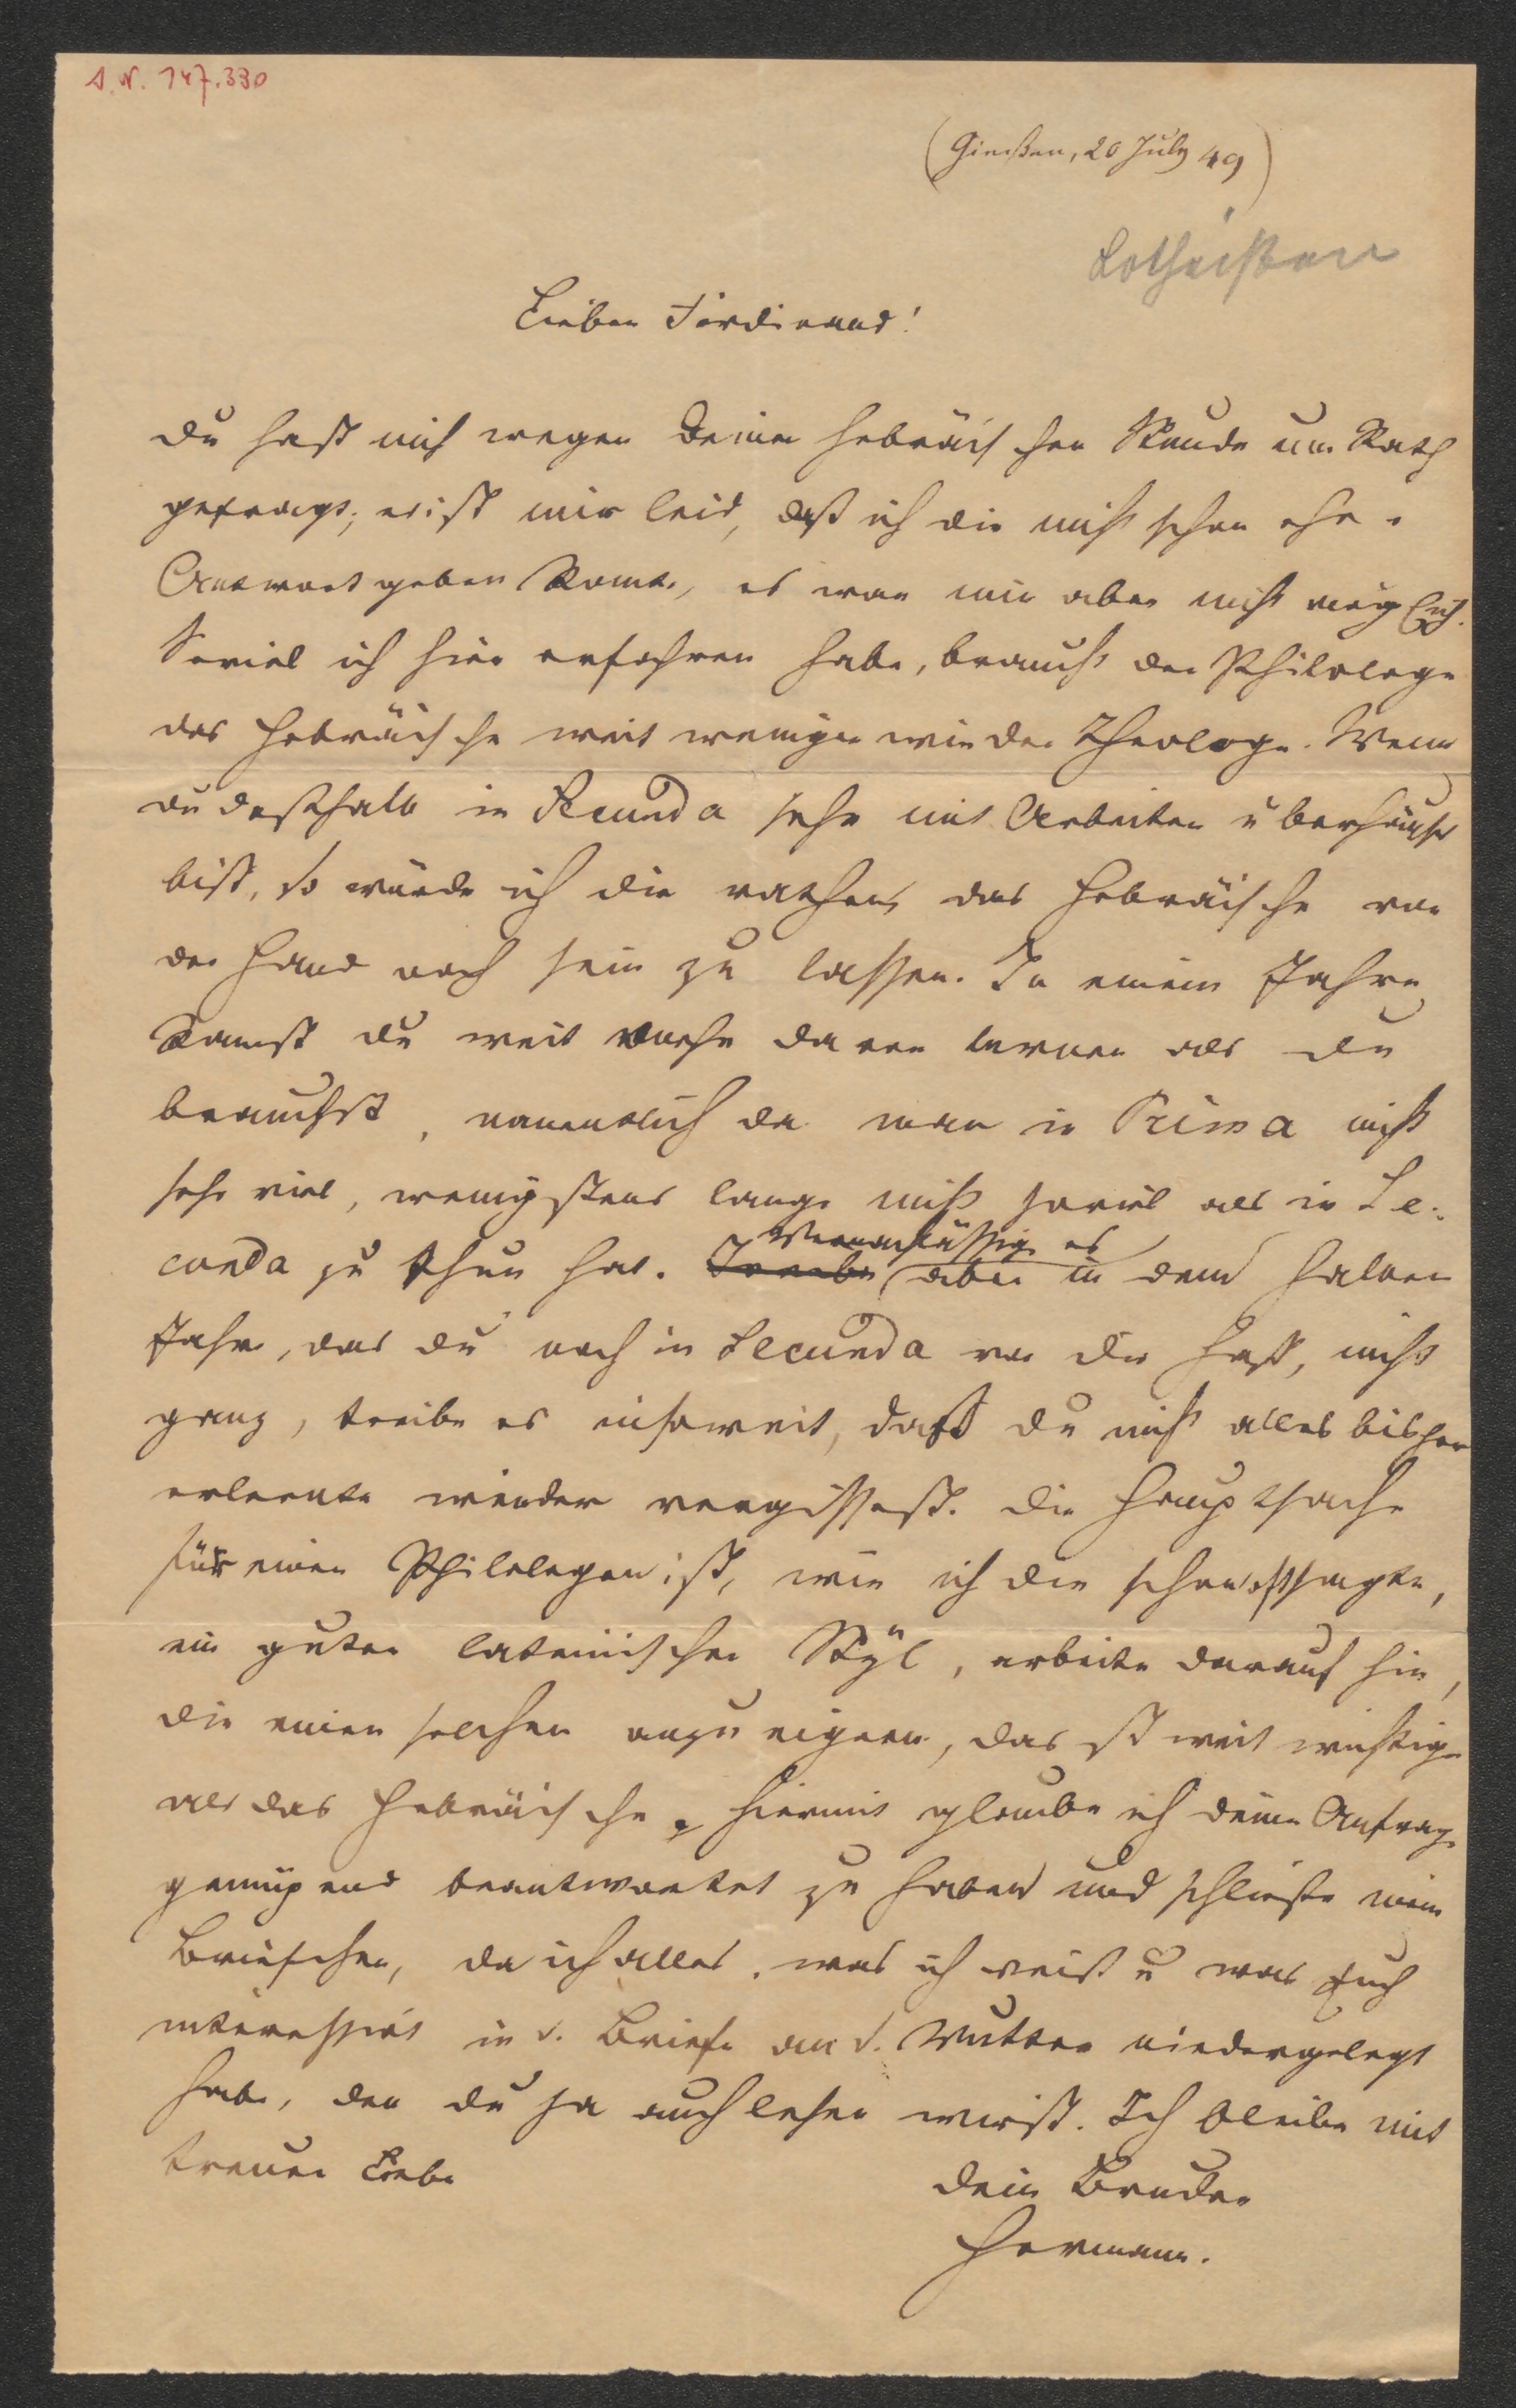 I. N. 147.330
(Gießen, 20 July 49)
Lotheißen
Lieber Ferdinand!
Du hast mich wegen Deiner hebräischen Stunde um Rath
gefragt; es ist mir leid, daß ich dir nicht schon eher
Antwort geben konnte, es war mir aber nicht möglich.
Soviel ich hier erfahren habe, braucht der Philologe
das Hebräische weit weniger wie der Theologe. Wenn
du deßhalb in Secunda sehr mit Arbeiten überhäuft
bist, so würde ich dir rathen, das Hebräische von
der Hand noch sein zu lassen. In einem Jahre
kannst du weit mehr davon lernen als du
brauchst, namentlich da man in Prima nicht
sehr viel, wenigstens lange nicht soviel als in Se-
cunda zu thun hat. Treibe Vernachlässige es aber in dem halben
Jahre, das du noch in Secunda vor dir hast, nicht
ganz, treibe es insoweit, daß du nicht alles bisher
erlernte wieder vergissest. Die Hauptsache
für einen Philologen ist, wie ich dir schon oft sagte,
ein guter lateinischer Styl, arbeite darauf hin,
dir einen solchen anzueignen, das ist weit wichtiger
als das Hebräische. Hiermit glaube ich deine Anfrage
genügend beantwortet zu haben und schließe mein
Briefchen, da ich alles, was ich weiß u was Euch
interessirt in d. Briefe an d. Mutter niedergelegt
habe, den du ja auch lesen wirst. Ich bleibe mit
treuer Liebe
dein Bruder
Hermann.